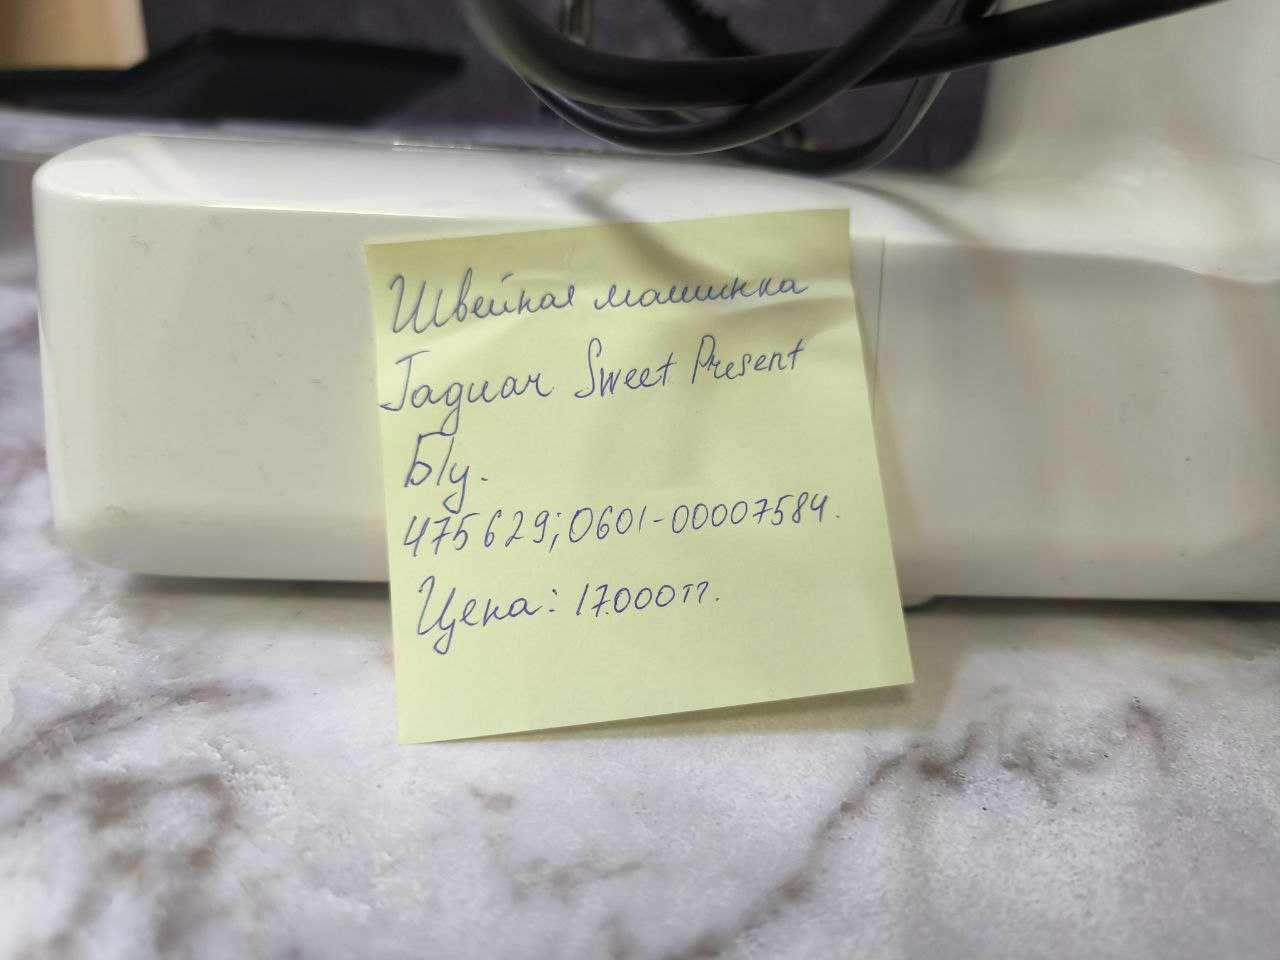 Швейная машинка
Jaguar Sweet Present
Б/у.
475629; 0601-00007584.
Цена: 17.000тг.